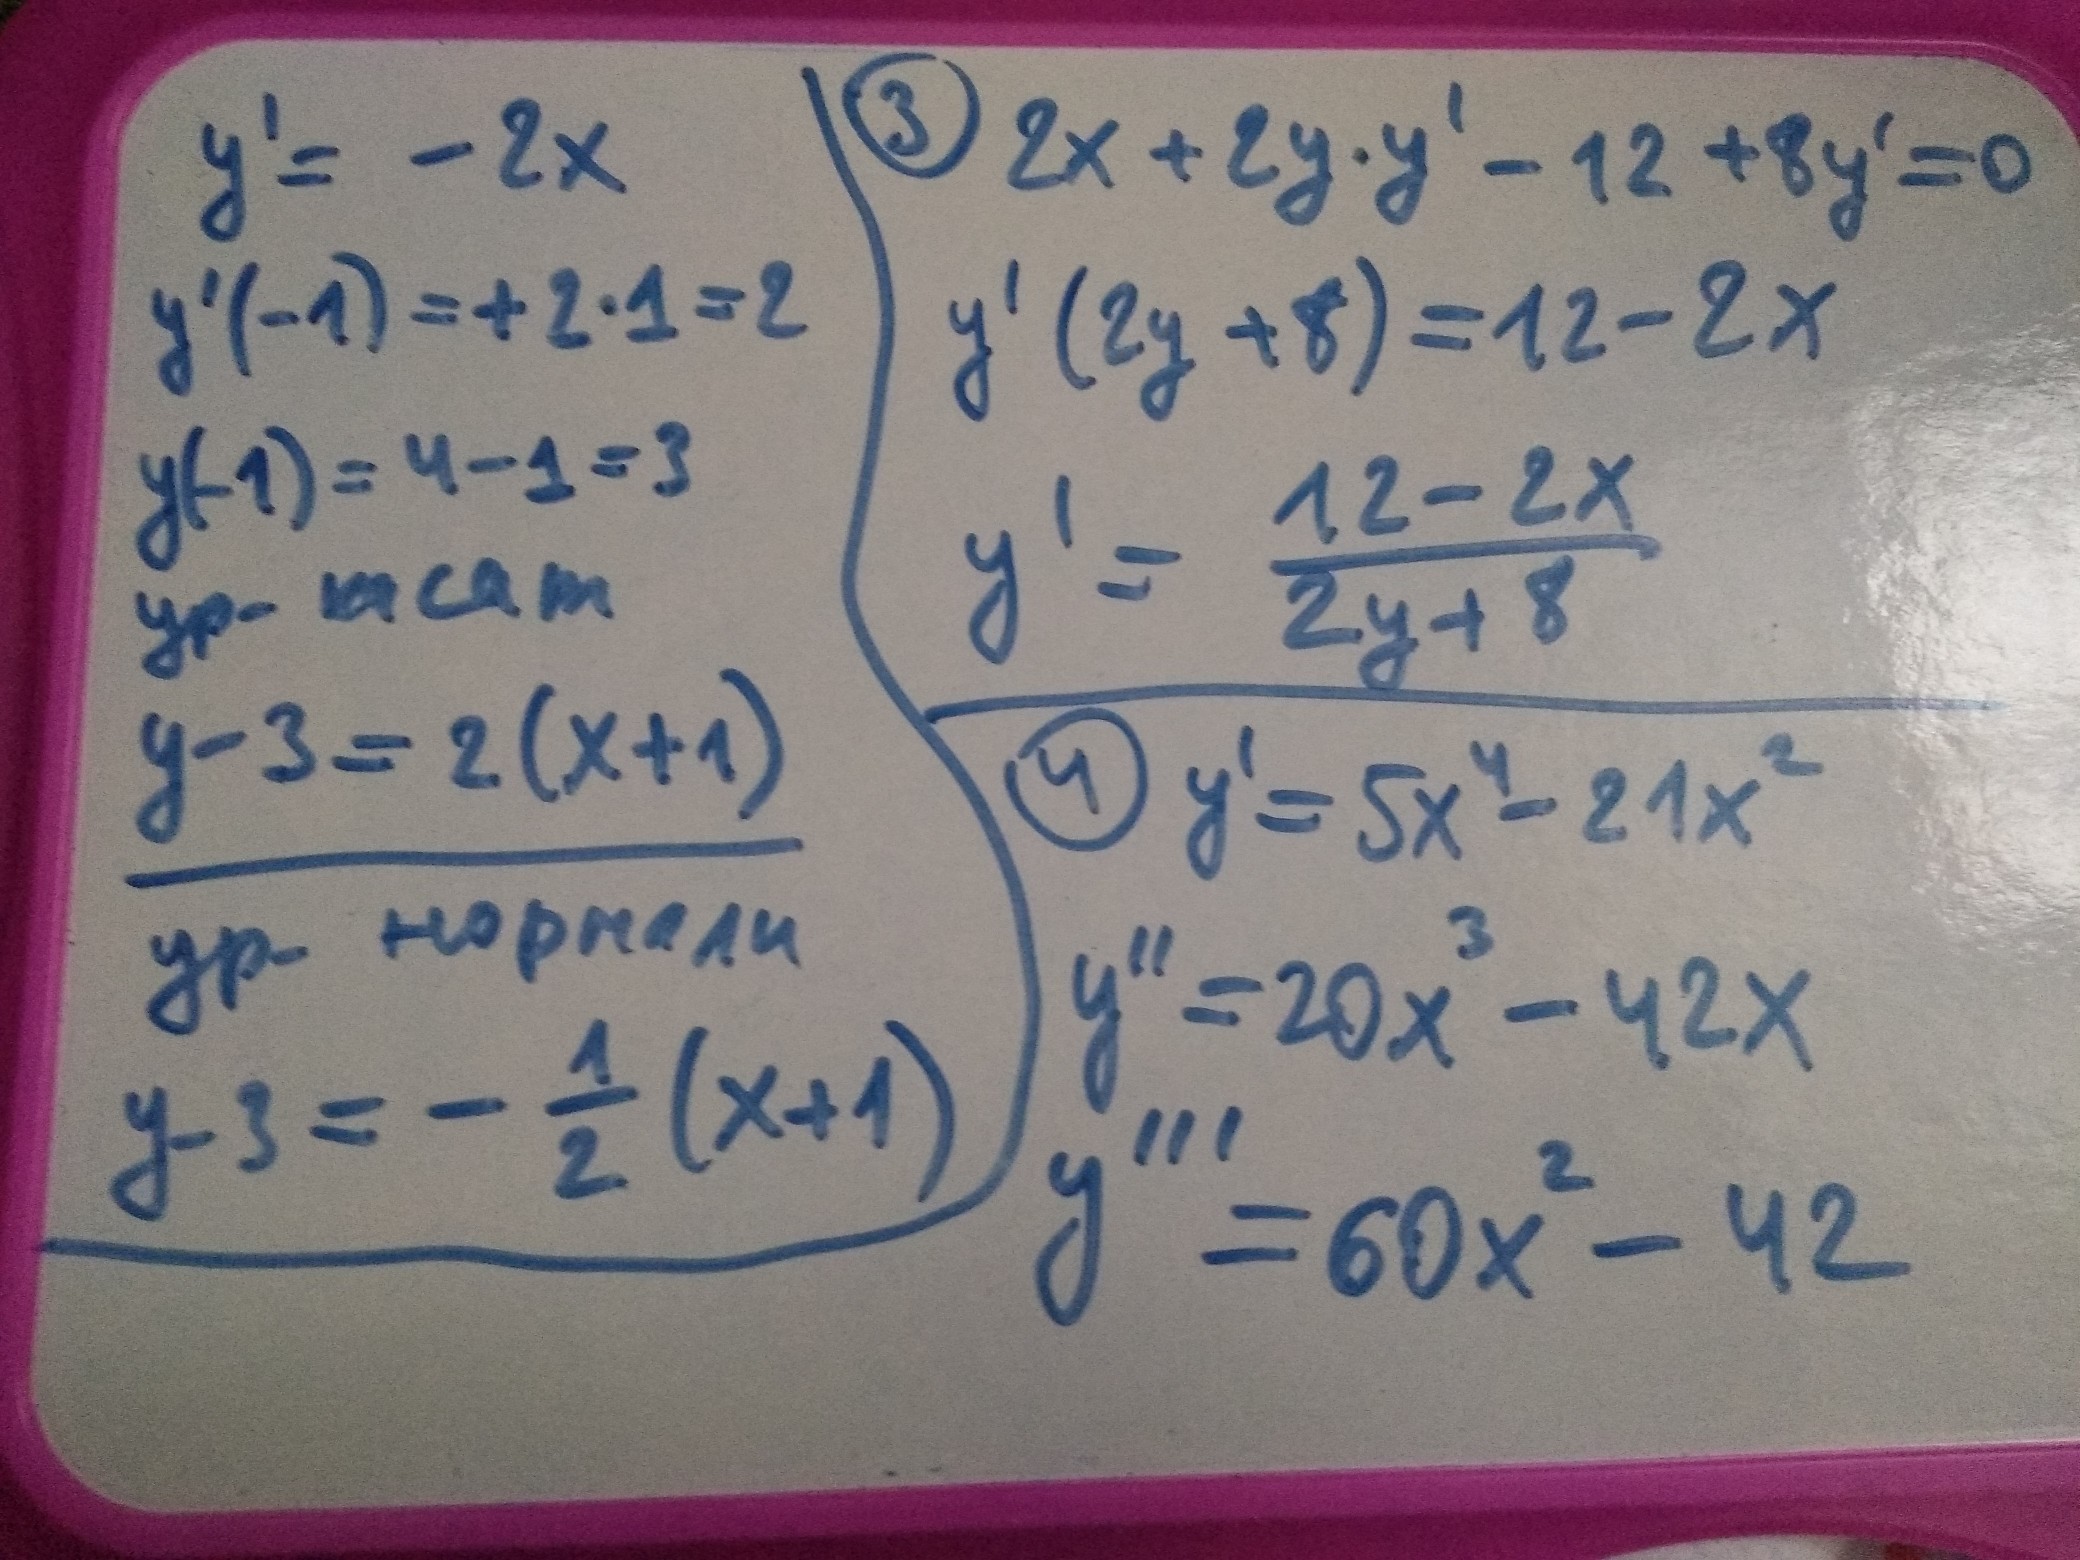 y' = - 2x
y'(-1) = + 2 · 1 = 2
y(-1) = 4 - 1 = 3
ур- касат
y - 3 = 2 (x + 1)
ур- нормали
y - 3 = - 1/2 (x + 1)
③ 2x + 2y · y' - 12 + 8y' = 0
y' (2y + 8) = 12 - 2x
y' = (12 - 2x)/(2y + 8)
④ y' = 5x⁴ - 21x²
y'' = 20x³ - 42x
y''' = 60x² - 42